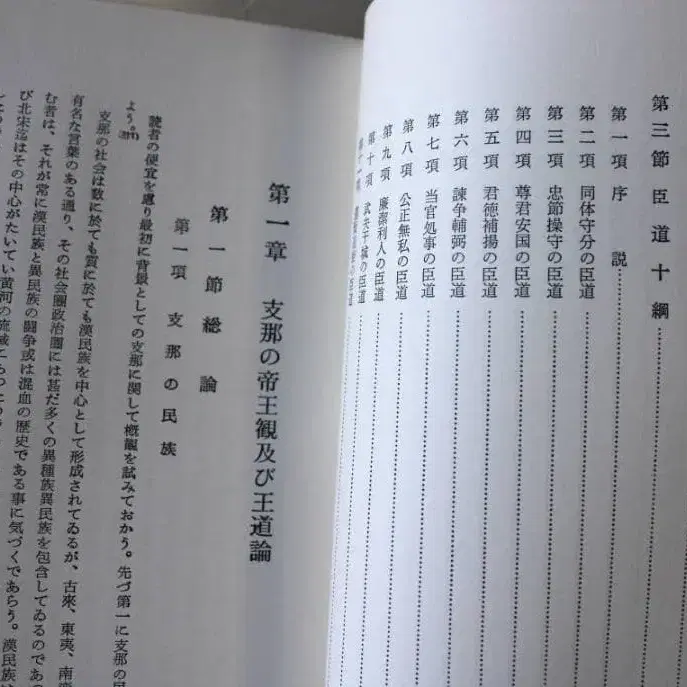 第三節 臣道十綱
第一項 序説
第二項 同体守分の臣道
第三項 忠節操守の臣道
第四項 尊君安国の臣道
第五項 君徳補揚の臣道
第六項 諫争輔弼の臣道
第七項 当官処事の臣道
第八項 公正無私の臣道
第九項 廉潔利人の臣道
第十項 武夫干城の臣道
第十一項 の臣道
第一章 支那の帝王観及び王道論
第一節 総論
第一項 支那の民族
読者の便宜を慮り最初に背景としての支那に関して概観を試みておかう。先づ第一に支那の民
よう。
支那の社会は数に於ても質に於ても漢民族を中心として形成されてゐるが、古来、東夷、南蛮
有名な言葉のある通り、その社会圏政治圏には甚だ多くの異種族異民族を包含してゐるのであ
む者は、それが常に漢民族と異民族の闘争或は混血の歴史である事に気づくであらう。漢民族は
び北宋迄はその中心がたいてい黄河の流域にあつた